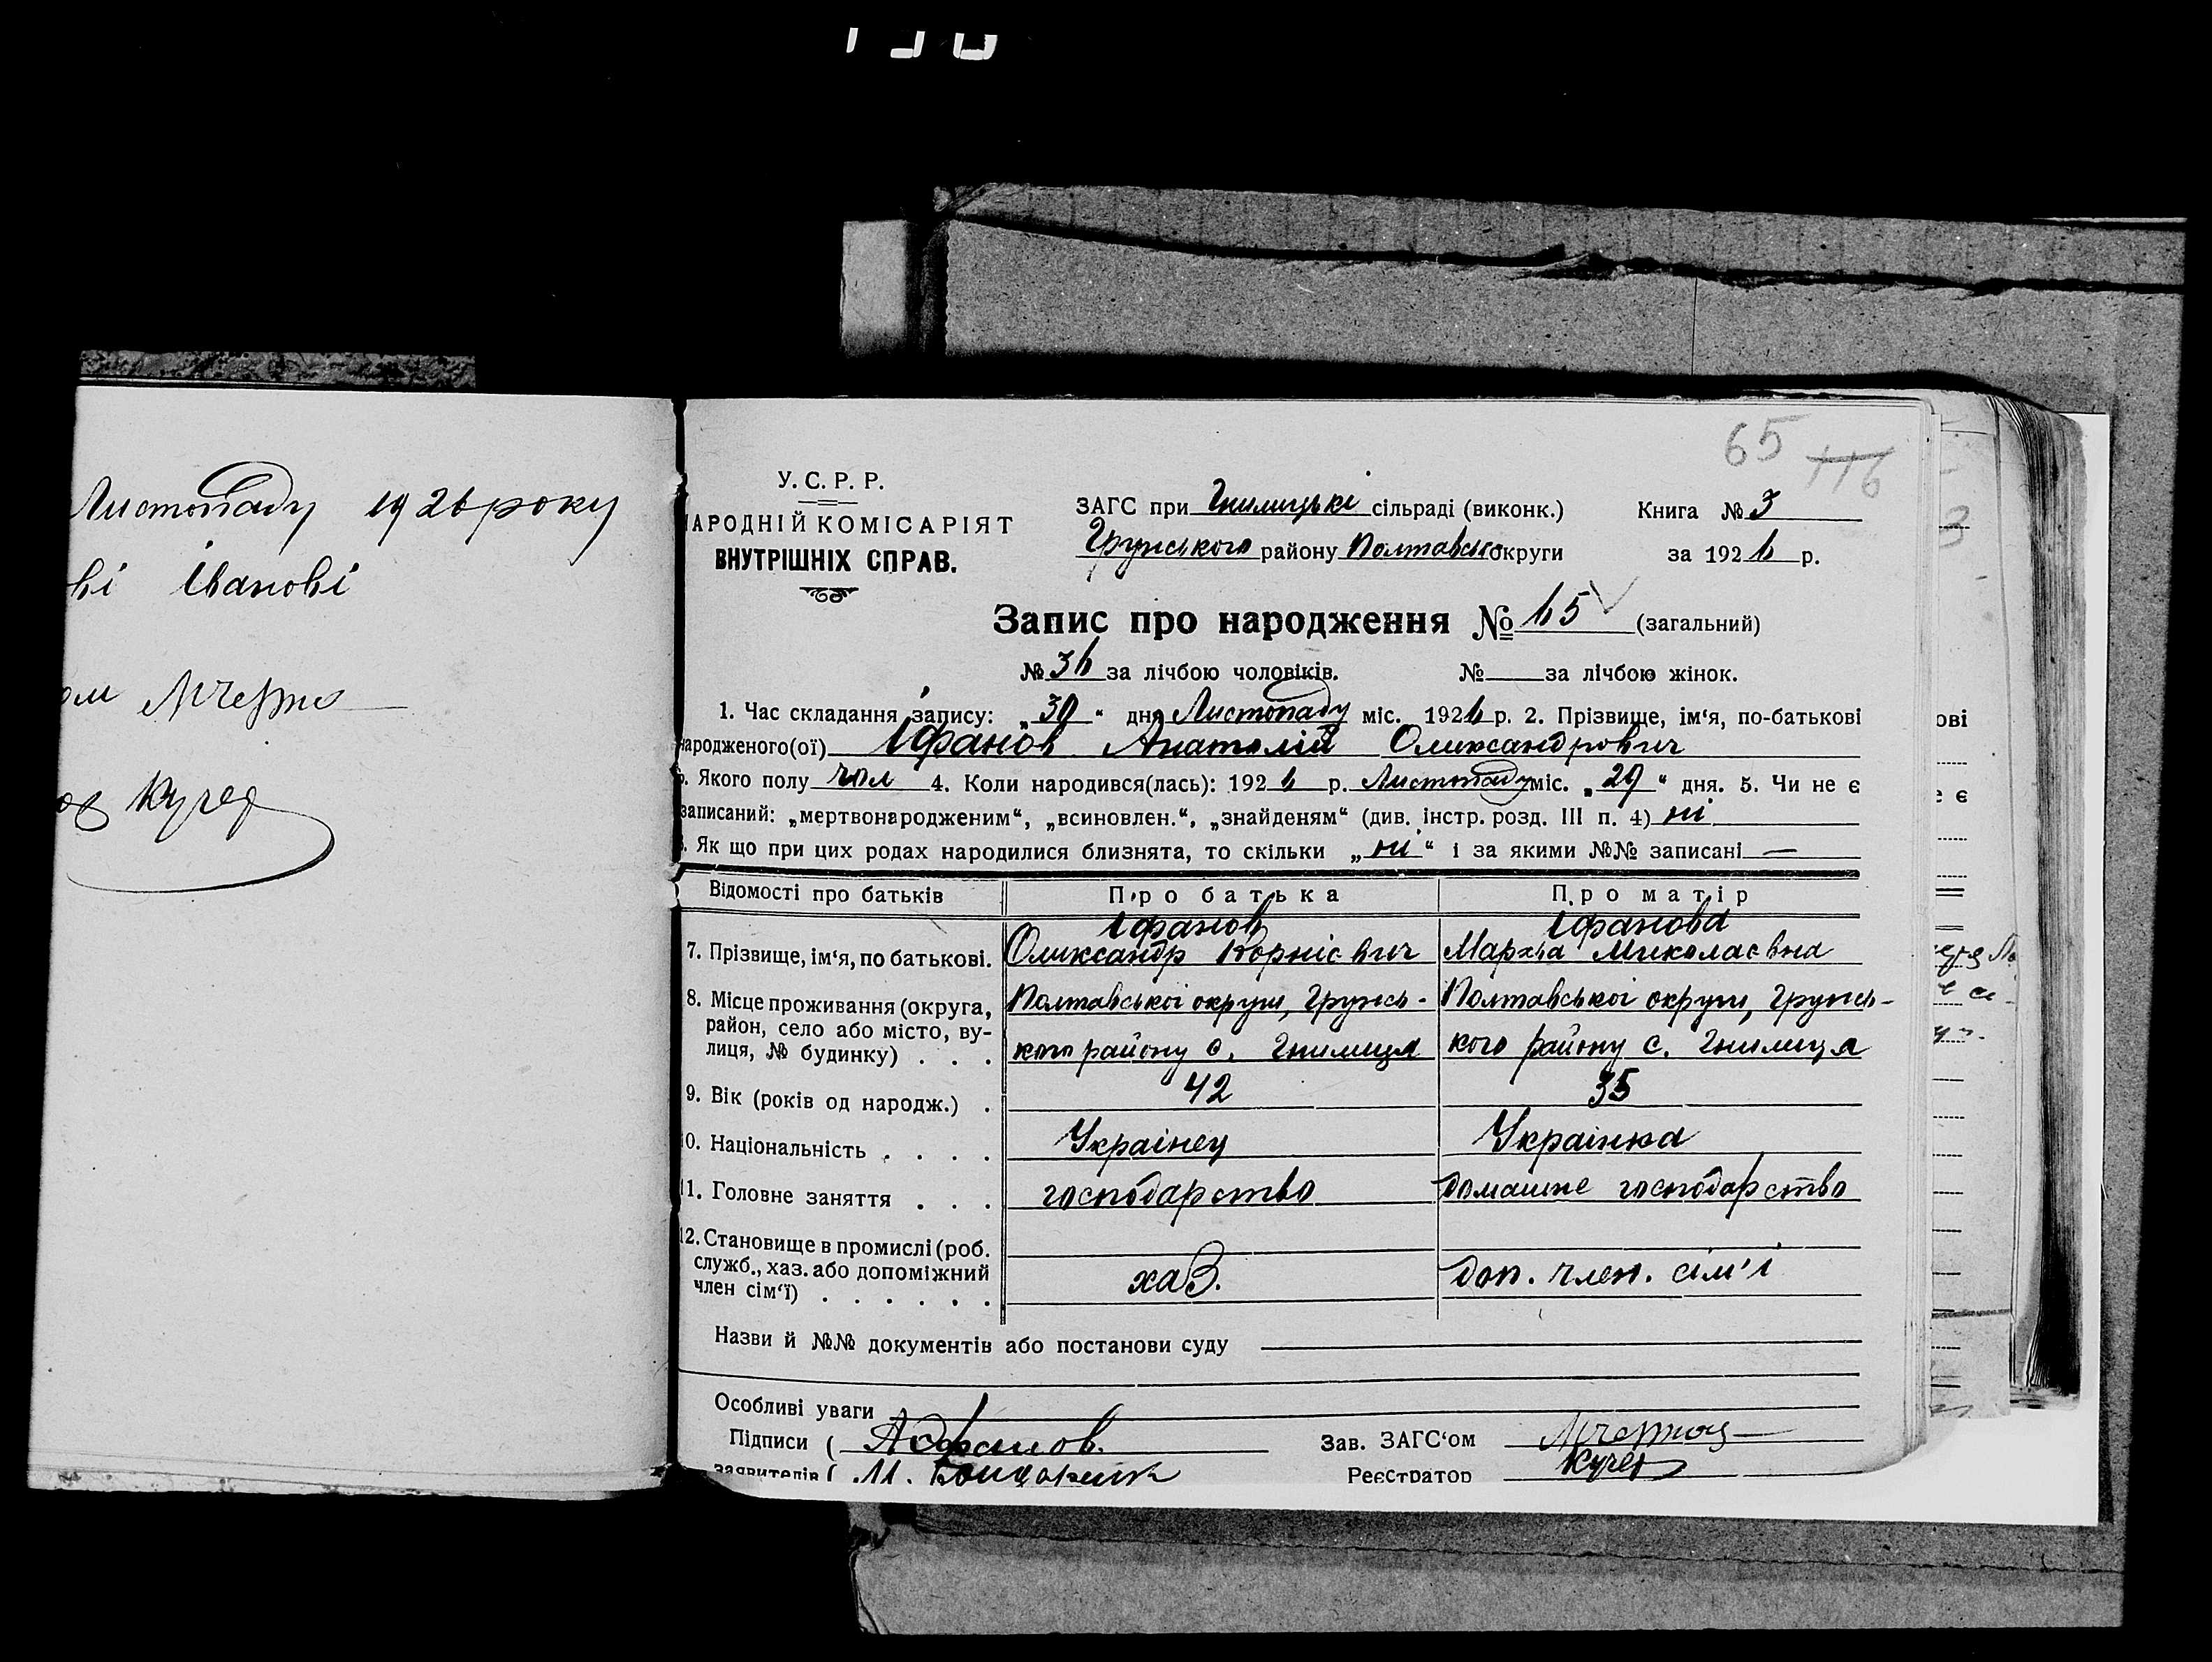 Листопаду 1926 року
ві Іванові
ом МЧерно
ор Кучер
65 116
У.С.Р.Р.
НАРОДНІЙ КОМІСАРІЯТ
ВНУТРІШНІХ СПРАВ.
ЗАГС при Гнилицькі сільраді (виконк.) Книга № 3
Грунського району Полтавсько округи за 1926 р.
Запис про народження № 65 (загальний)
№ 36 за лічбою чоловіків. № — за лічбою жінок.
1. Час складання запису: „30“ дня Листопаду міс. 1926 р. 2. Прізвище, ім‘я, по-батькові
народженого(ої) Іфанов Анатолій Олександрович
3. Якого полу чол 4. Коли народився(лась): 1926 р. Листопаду міс. „29“ дня. 5. Чи не є
записаний: „мертвонародженим“, „всиновлен.“, „знайденям“ (див. інстр. розд. III п. 4) ні
6. Як що при цих родах народилися близнята, то скільки „ні“ і за якими №№ записані —
Відомості про батьків Про батька Про матір
Іфанов Іфанова
7. Прізвище, ім‘я, по батькові. Олександр Корнієвич Мархва Миколаєвна
8. Місце проживання (округа, район, село або місто, вулиця, № будинку) . . . Полтавської округи, Грунсь- Полтавської округи, Грунсь-
кого району с. Гнилиця кого району с. Гнилиця
9. Вік (років од народж.) . 42 35
10. Національність . . . . Украінец Украінка
11. Головне заняття . . . господарство домашне господарство
12. Становище в промислі (роб. служб., хаз. або допоміжний член сім‘ї) . . . . . . хаз. доп. член. сім'і
Назви й №№ документів або постанови суду
Особливі уваги
Підписи ( АІфанов. Зав. ЗАГС‘ом
заявителів ( М. Реєстратор Кучер